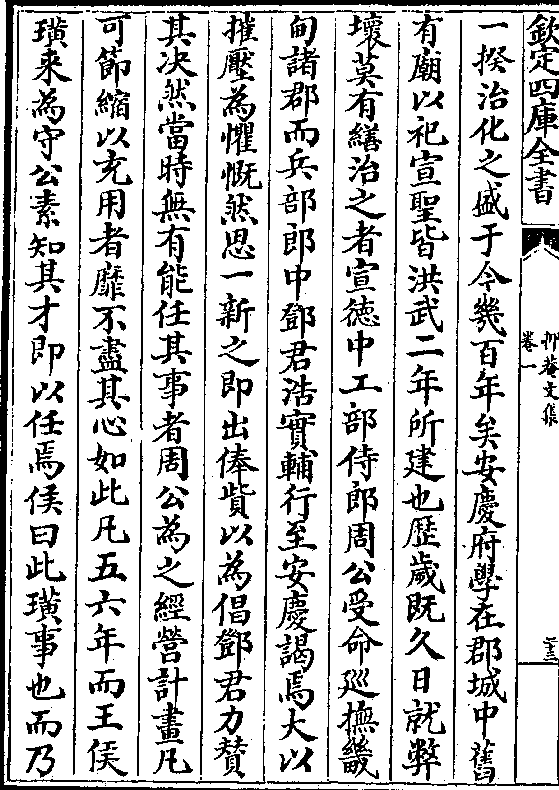 欽定四庫全書
抑菴文集
卷一
二十三
一揆治化之盛于今幾百年矣安慶府學在郡城中舊
有廟以祀宣聖皆洪武二年所建也歴歲既久日就弊
壞莫有繕治之者宣徳中工部侍郎周公受命廵撫畿
甸諸郡而兵部郎中鄧君浩實輔行至安慶謁焉大以
摧壓為懼慨然思一新之即出俸貲以為倡鄧君力贊
其决然當時無有能任其事者周公為之經營計畫凡
可節縮以充用者靡不盡其心如此凡五六年而王侯
璜来為守公素知其才即以任焉侯曰此璜事也而乃